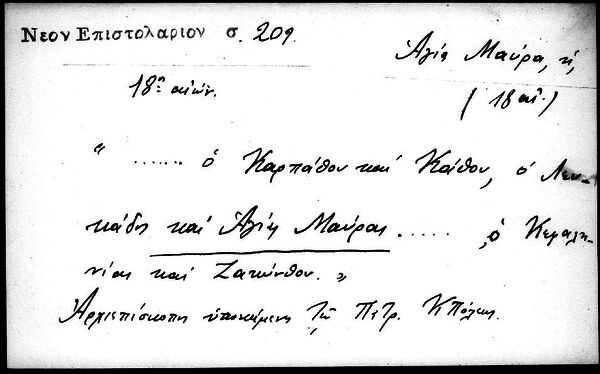 Νεον Επιστολαριον σ. 209
Ἁγία Μαύρα, ἡ,
18ος αἰών.
(18 αἰ.)
" ...... ὁ Καρπάθου καὶ Κάσου, ὁ Λευ-
κάδος καὶ Ἁγίας Μαύρας ..... , ὁ Κεφαλη-
νίας καὶ Ζακύνθου. "
Ἀρχιεπίσκοπος ὑποκείμενος τῷ Πατρ. ΚΠόλεως.